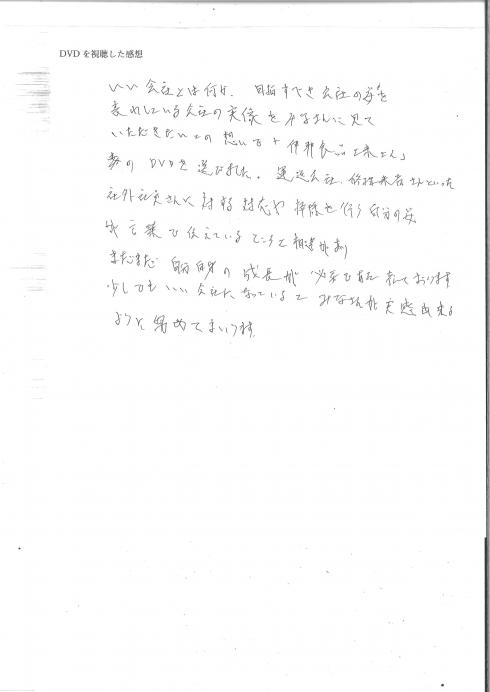 DVDを視聴した感想
いい会社とは何か、目指すべき会社の姿を
表れしている会社の実像をみなさんに見て
いただきたいとの想いで「伊那食品工業さん」
のDVDを選びました。運送会社、修理業者さんといった
社外社員さんに対する対応や掃除を行う自分の姿
や言葉で伝えているところに相違があり
まだまだ自分自身の成長が必要であると
少しでもいい会社になっているとみなさんが実感出来る
ように努めてまいります。